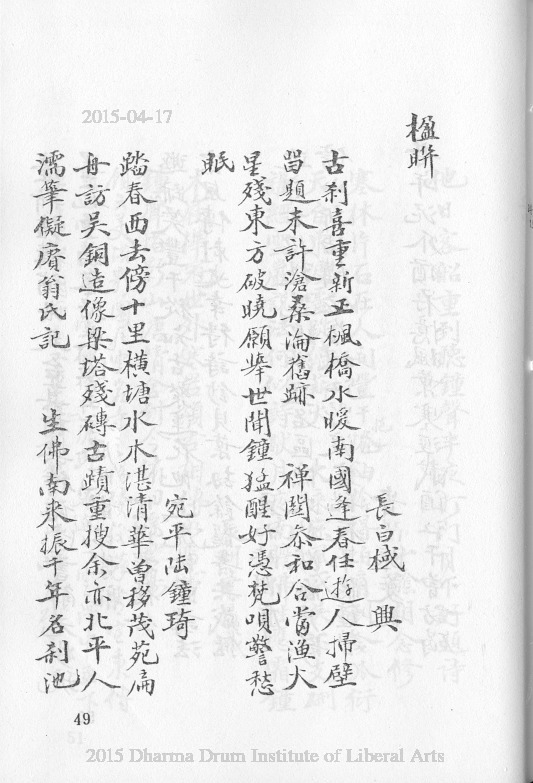 2015-04-17
楹聯
長白椷 興
古刹喜重新正楓橋水暖南國逢春任遊人掃壁
畱題未許滄桑淪舊跡 禅關叅和合當漁火
星殘東方破曉願舉世聞鐘猛醒好憑梵唄警愁
眠
宛平陆鐘琦
踏春西去傍十里橫塘水木湛清華曾移茂苑扁
舟訪吴銅造像梁塔殘磚古蹟重搜余亦北平人
濡筆儗賡翁氏記 生佛南来振千年名刹池
49
2015 Dharma Drum Institute of Liberal Arts